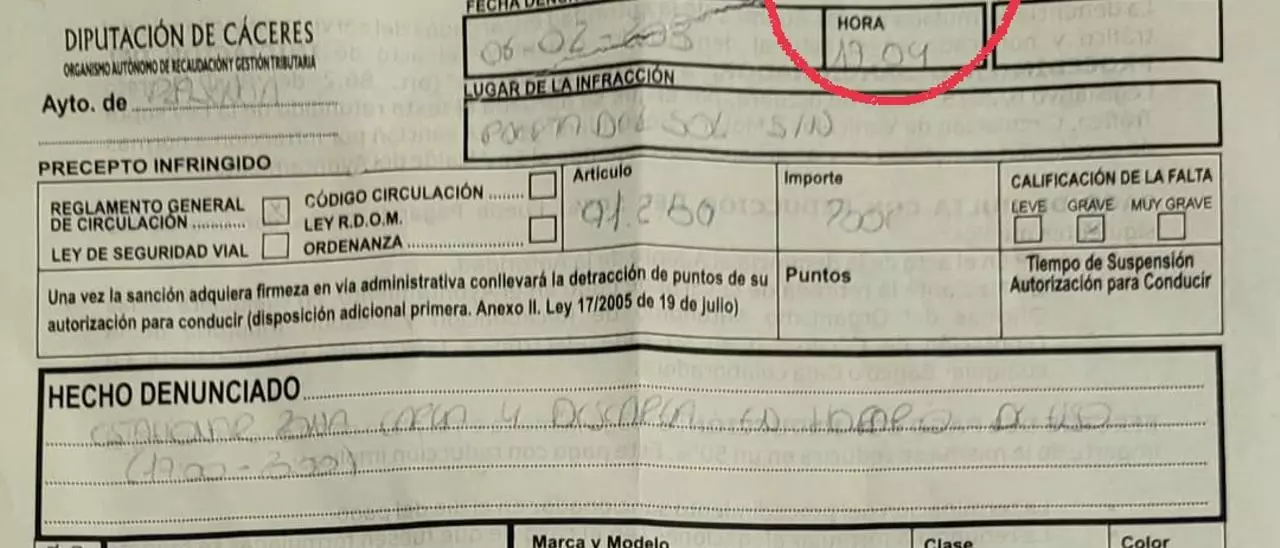 FECHA
DIPUTACIÓN DE CÁCERES
ORGANISMO AUTÓNOMO DE RECAUDACIÓN Y GESTIÓN TRIBUTARIA
HORA
17.09
Ayto. de
LUGAR DE LA INFRACCIÓN
SOL S/N
PRECEPTO INFRINGIDO
REGLAMENTO GENERAL
DE CIRCULACIÓN
LEY DE SEGURIDAD VIAL
CÓDIGO CIRCULACIÓN
LEY R.D.O.M.
ORDENANZA
Artículo
Importe
CALIFICACIÓN DE LA FALTA
LEVE GRAVE MUY GRAVE
Una vez la sanción adquiera firmeza en vía administrativa conllevará la detracción de puntos de su
autorización para conducir (disposición adicional primera. Anexo II. Ley 17/2005 de 19 de julio)
Puntos
Tiempo de Suspensión
Autorización para Conducir
HECHO DENUNCIADO
ZONA CARGA Y DESCARGA EN HORARIO DE USO
Marca y Modelo
Clase
Color